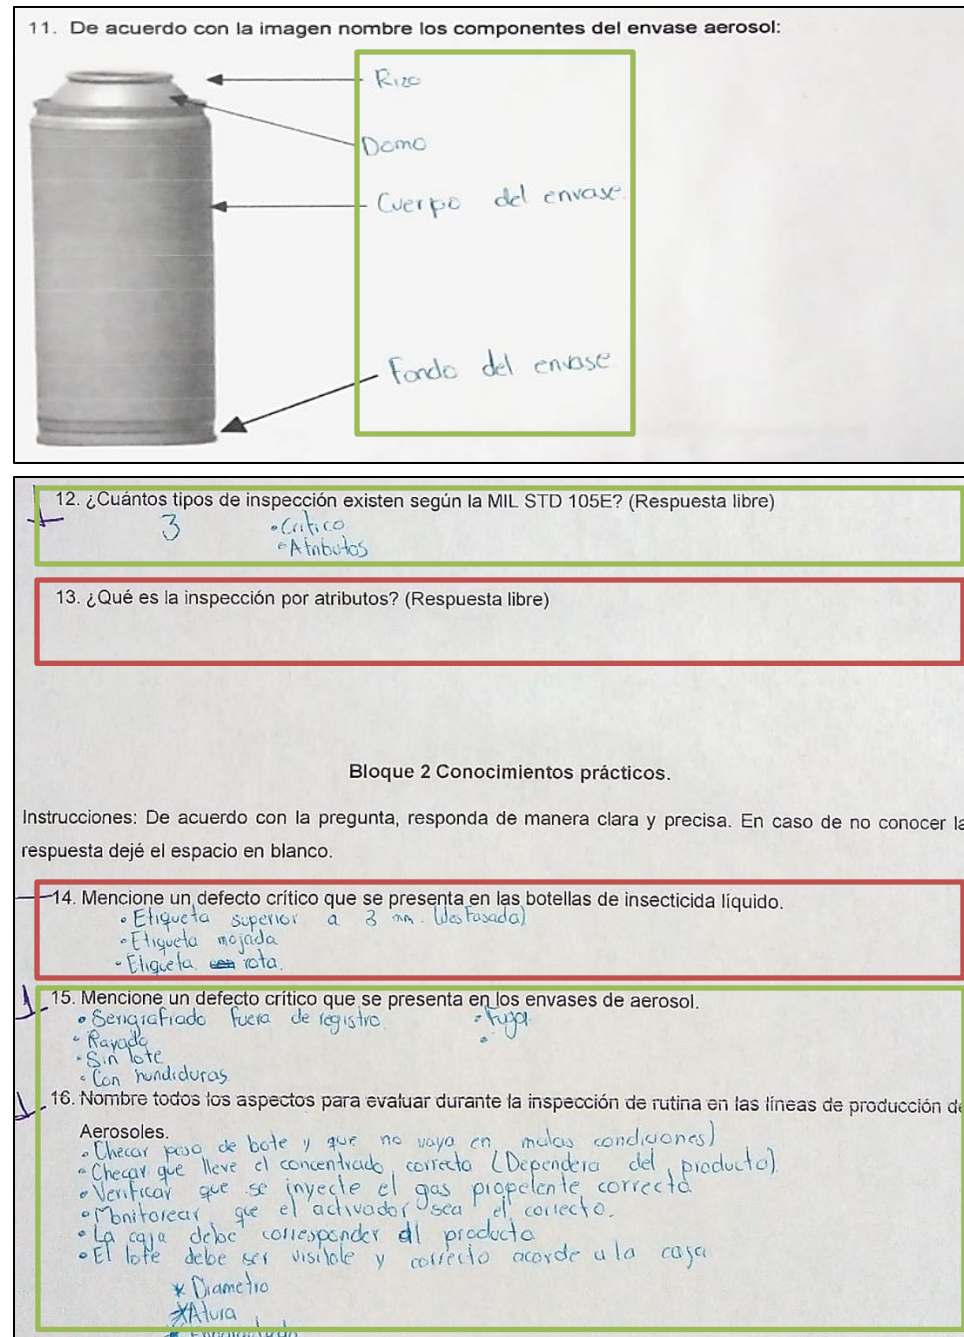 11. De acuerdo con la imagen nombre los componentes del envase aerosol:
Rizo
Domo
Cuerpo del envase.
Fondo del envase
12. ¿Cuántos tipos de inspección existen según la MIL STD 105E? (Respuesta libre)
3 •Crítico
•Atributos
13. ¿Qué es la inspección por atributos? (Respuesta libre)
Bloque 2 Conocimientos prácticos.
Instrucciones: De acuerdo con la pregunta, responda de manera clara y precisa. En caso de no conocer la
respuesta dejé el espacio en blanco.
14. Mencione un defecto crítico que se presenta en las botellas de insecticida líquido.
• Etiqueta superior a 3 mm. (desfasada)
•Etiqueta mojada
•Etiqueta rota.
15. Mencione un defecto crítico que se presenta en los envases de aerosol.
• Serigrafiado fuera de registro •Fuga
• Rayado
•Sin lote
•Con hundiduras.
16. Nombre todos los aspectos para evaluar durante la inspección de rutina en las líneas de producción de
Aerosoles.
•Checar peso de bote y que no vaya en malas condiciones)
•Checar que lleve el concentrado correcto (Dependera del producto).
•Verificar que se inyecte el gas propelente correcto
•Monitorear que el activador sea el correcto.
•La caja debe corresponder al producto
•El lote debe ser visible y correcto acorde a la caja
* Diametro
* Altura